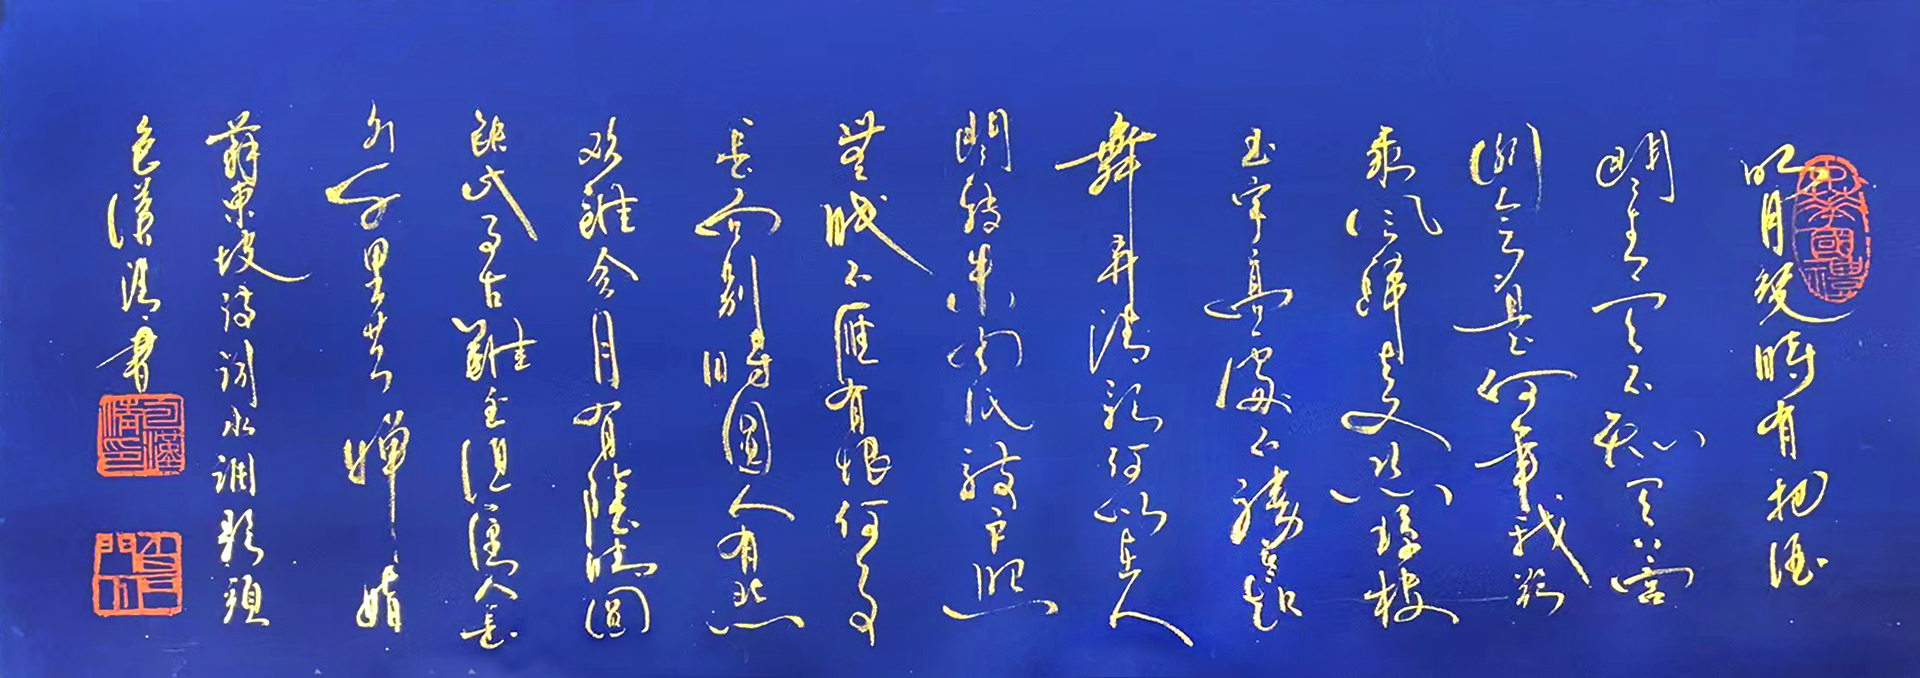 明月幾時有把酒
問青天不知天上宮
闕今夕是何年我欲
乘風歸去又恐瓊樓
玉宇高處不勝寒起
舞弄清影何似在人
間轉朱閣低綺戶照
無眠不應有恨何事
長向別時圓人有悲
歡離合月有陰晴圓
缺此事古難全但願人長
久千里共嬋娟
蘇東坡詩詞水調歌頭
包漢清書
中華國禮
包漢清印